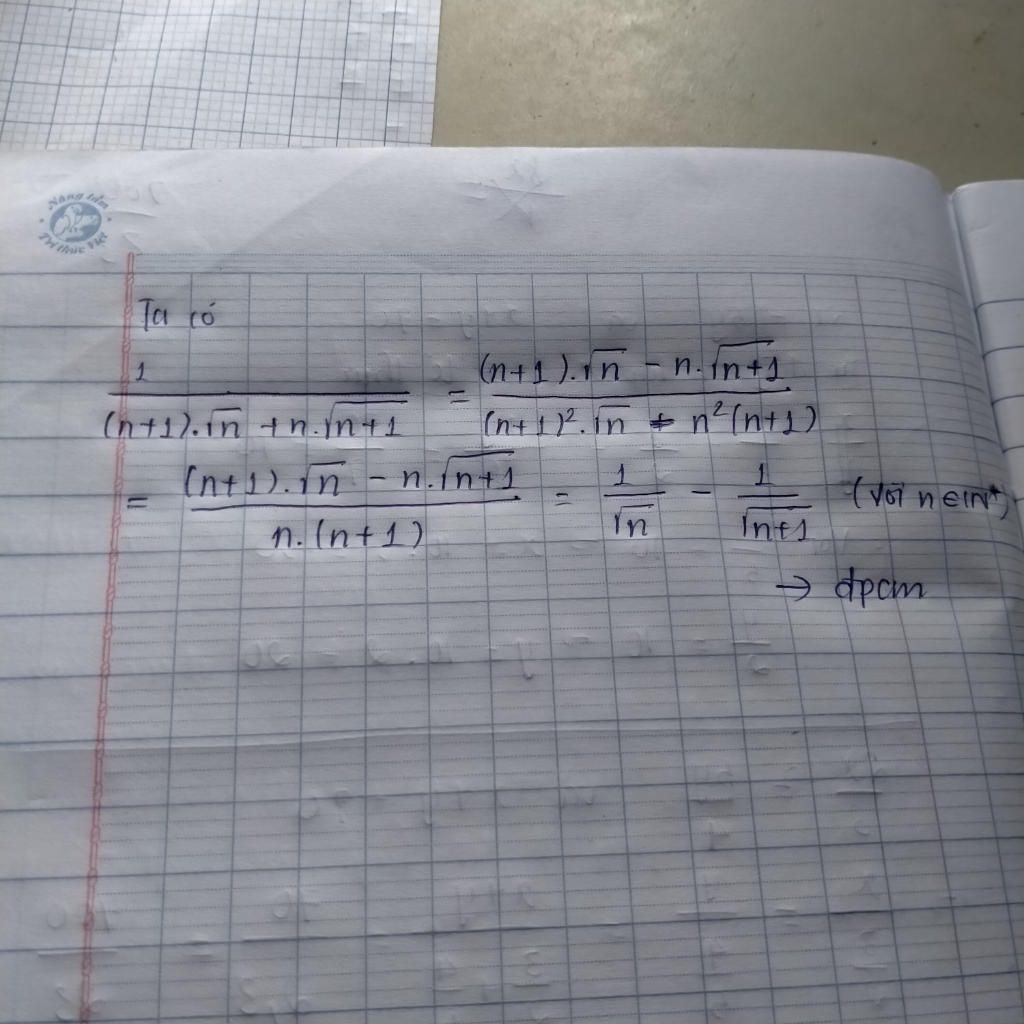 Nâng tầm
Trí thức Việt
Ta có
1/((n+1).√n + n.√(n+1)) = ((n+1).√n − n.√(n+1))/((n+1)².√n − n²(n+1))
= ((n+1).√n − n.√(n+1))/(n.(n+1)) = 1/√n − 1/√(n+1) (Với n ∈ ℕ*)
→ đpcm